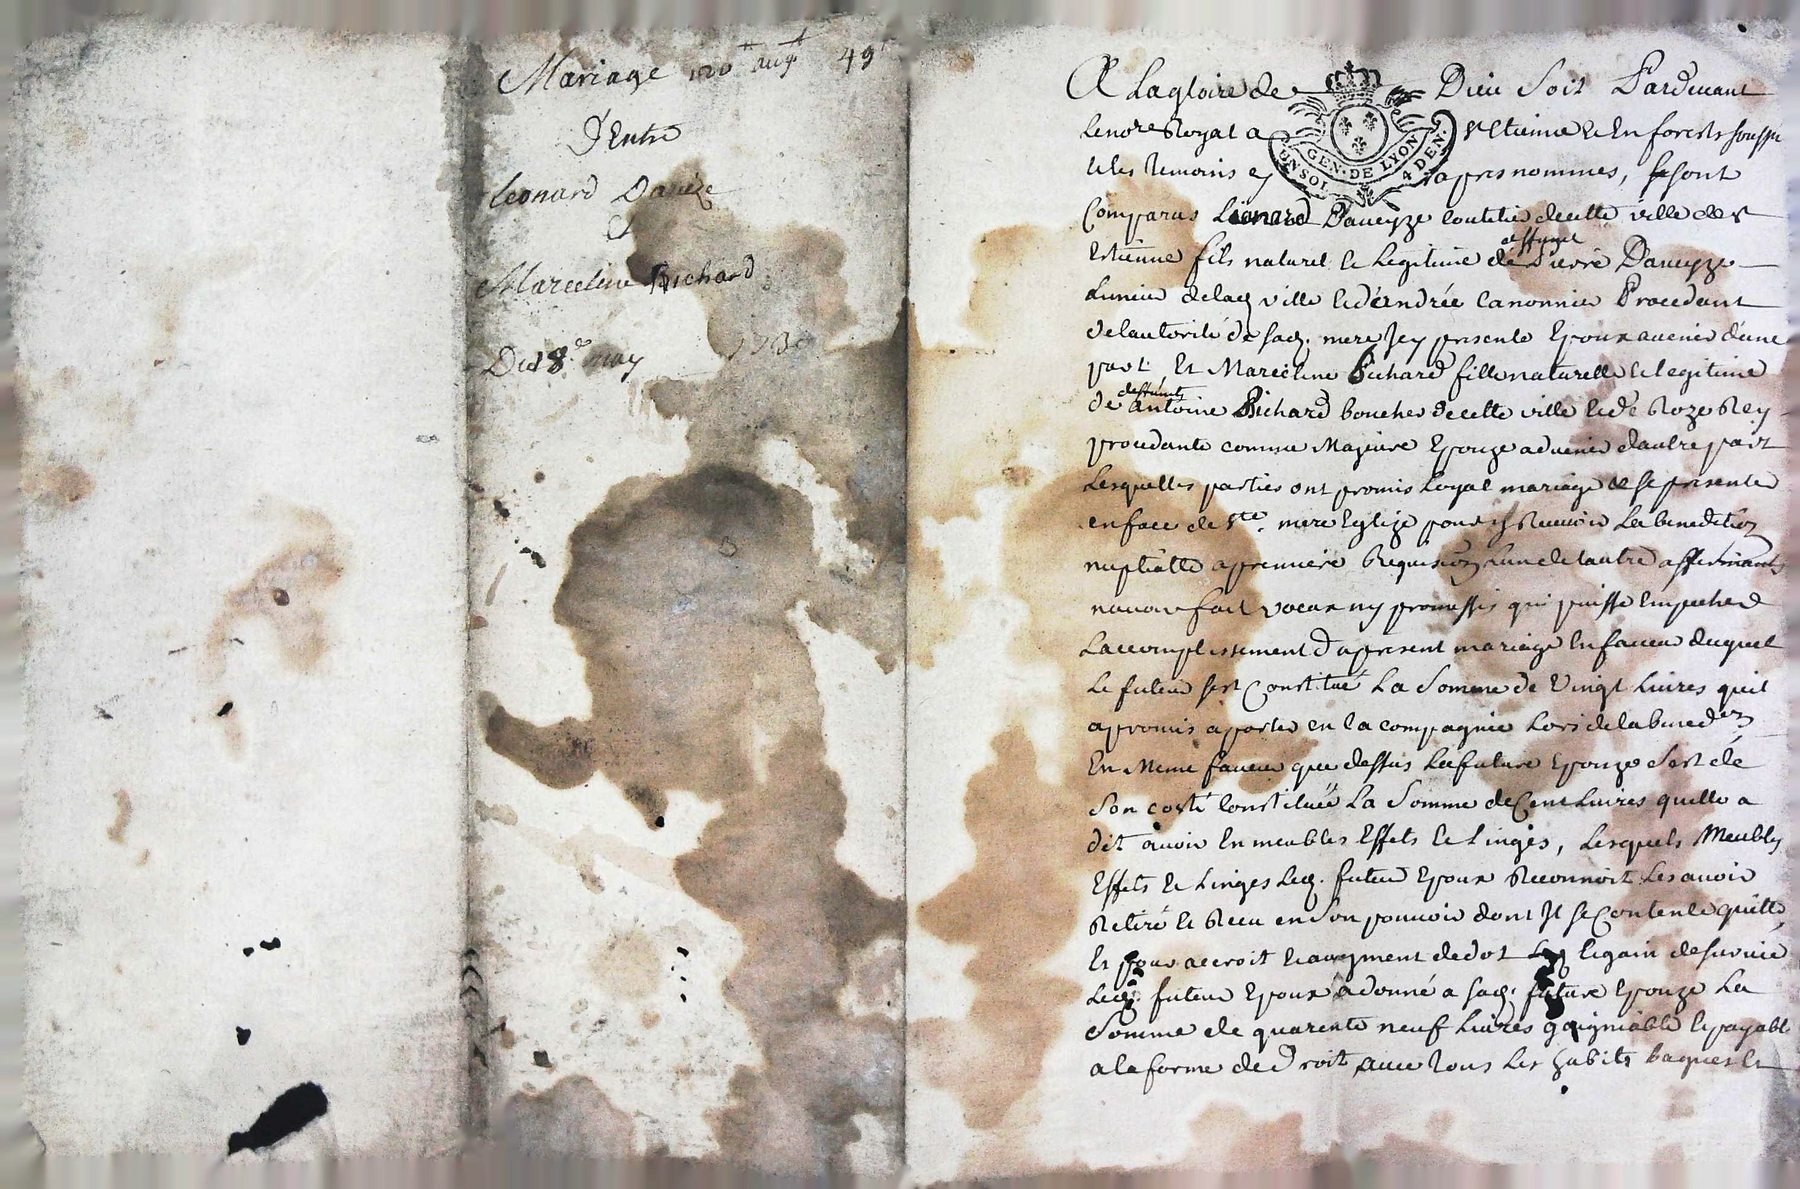 Mariage 120 augt 49
D'Entre
Leonard Daveze
Et
Marceline Richard
Du 8e may 1730
A La gloire de Dieu Soit Pardevant
Le nore Royal a St Etienne Et En forests soussne
Et les Temoins cy apres nommes, se sont
Comparus Léonard Daveyze coutelier de cette ville de St
Estienne fils naturel et Legitime de deffunct Pierre Daveyze
Limeur de lad ville et d'endrée Canonnier Procedant
de l'autorité de sad. mere Icy presente Epoux avenir d'une
part Et Marceline Richard fille naturelle et legitime
de deffunct antoine Richard boucher de cette ville et de Roze Rey
procedante comme Majeure Epouze advenir d'autre part
Lesquelles parties ont promis Loyal mariage et se presenter
en face de Ste. mere Eglize pour y Recevoir La benediction
nuptialle a premiere Requision l'un de l'autre affirmants
n'avoir fait voeux ny promesses qui puisse Empecher
L'accomplissement du present mariage En faveur duquel
Le futeur sest Constitué La Somme de Vingt Livres quil
a promis aporter en la compagnie Lors de la benedon
En Meme faveur que dessus La future Epouze sest de
Son costé Constituée La Somme de Cent Livres quelle a
dit avoir En meubles Effets et Linges, Lesquels Meubles
Effets et Linges Led. futeur Epoux Reconnoit Les avoir
Retiré et Receu en Son pouvoir dont Il se Contente quitte,
Et pour accroit et augment de dot Et gain de survie
Led. futeur Epoux a donné a sad. future Epouze La
Somme de quarente neuf Livres gaigniable et payable
a la forme de Droit avec Tous Les habits bagues et
GEN. DE LYON
CONSOL 4 DEN.